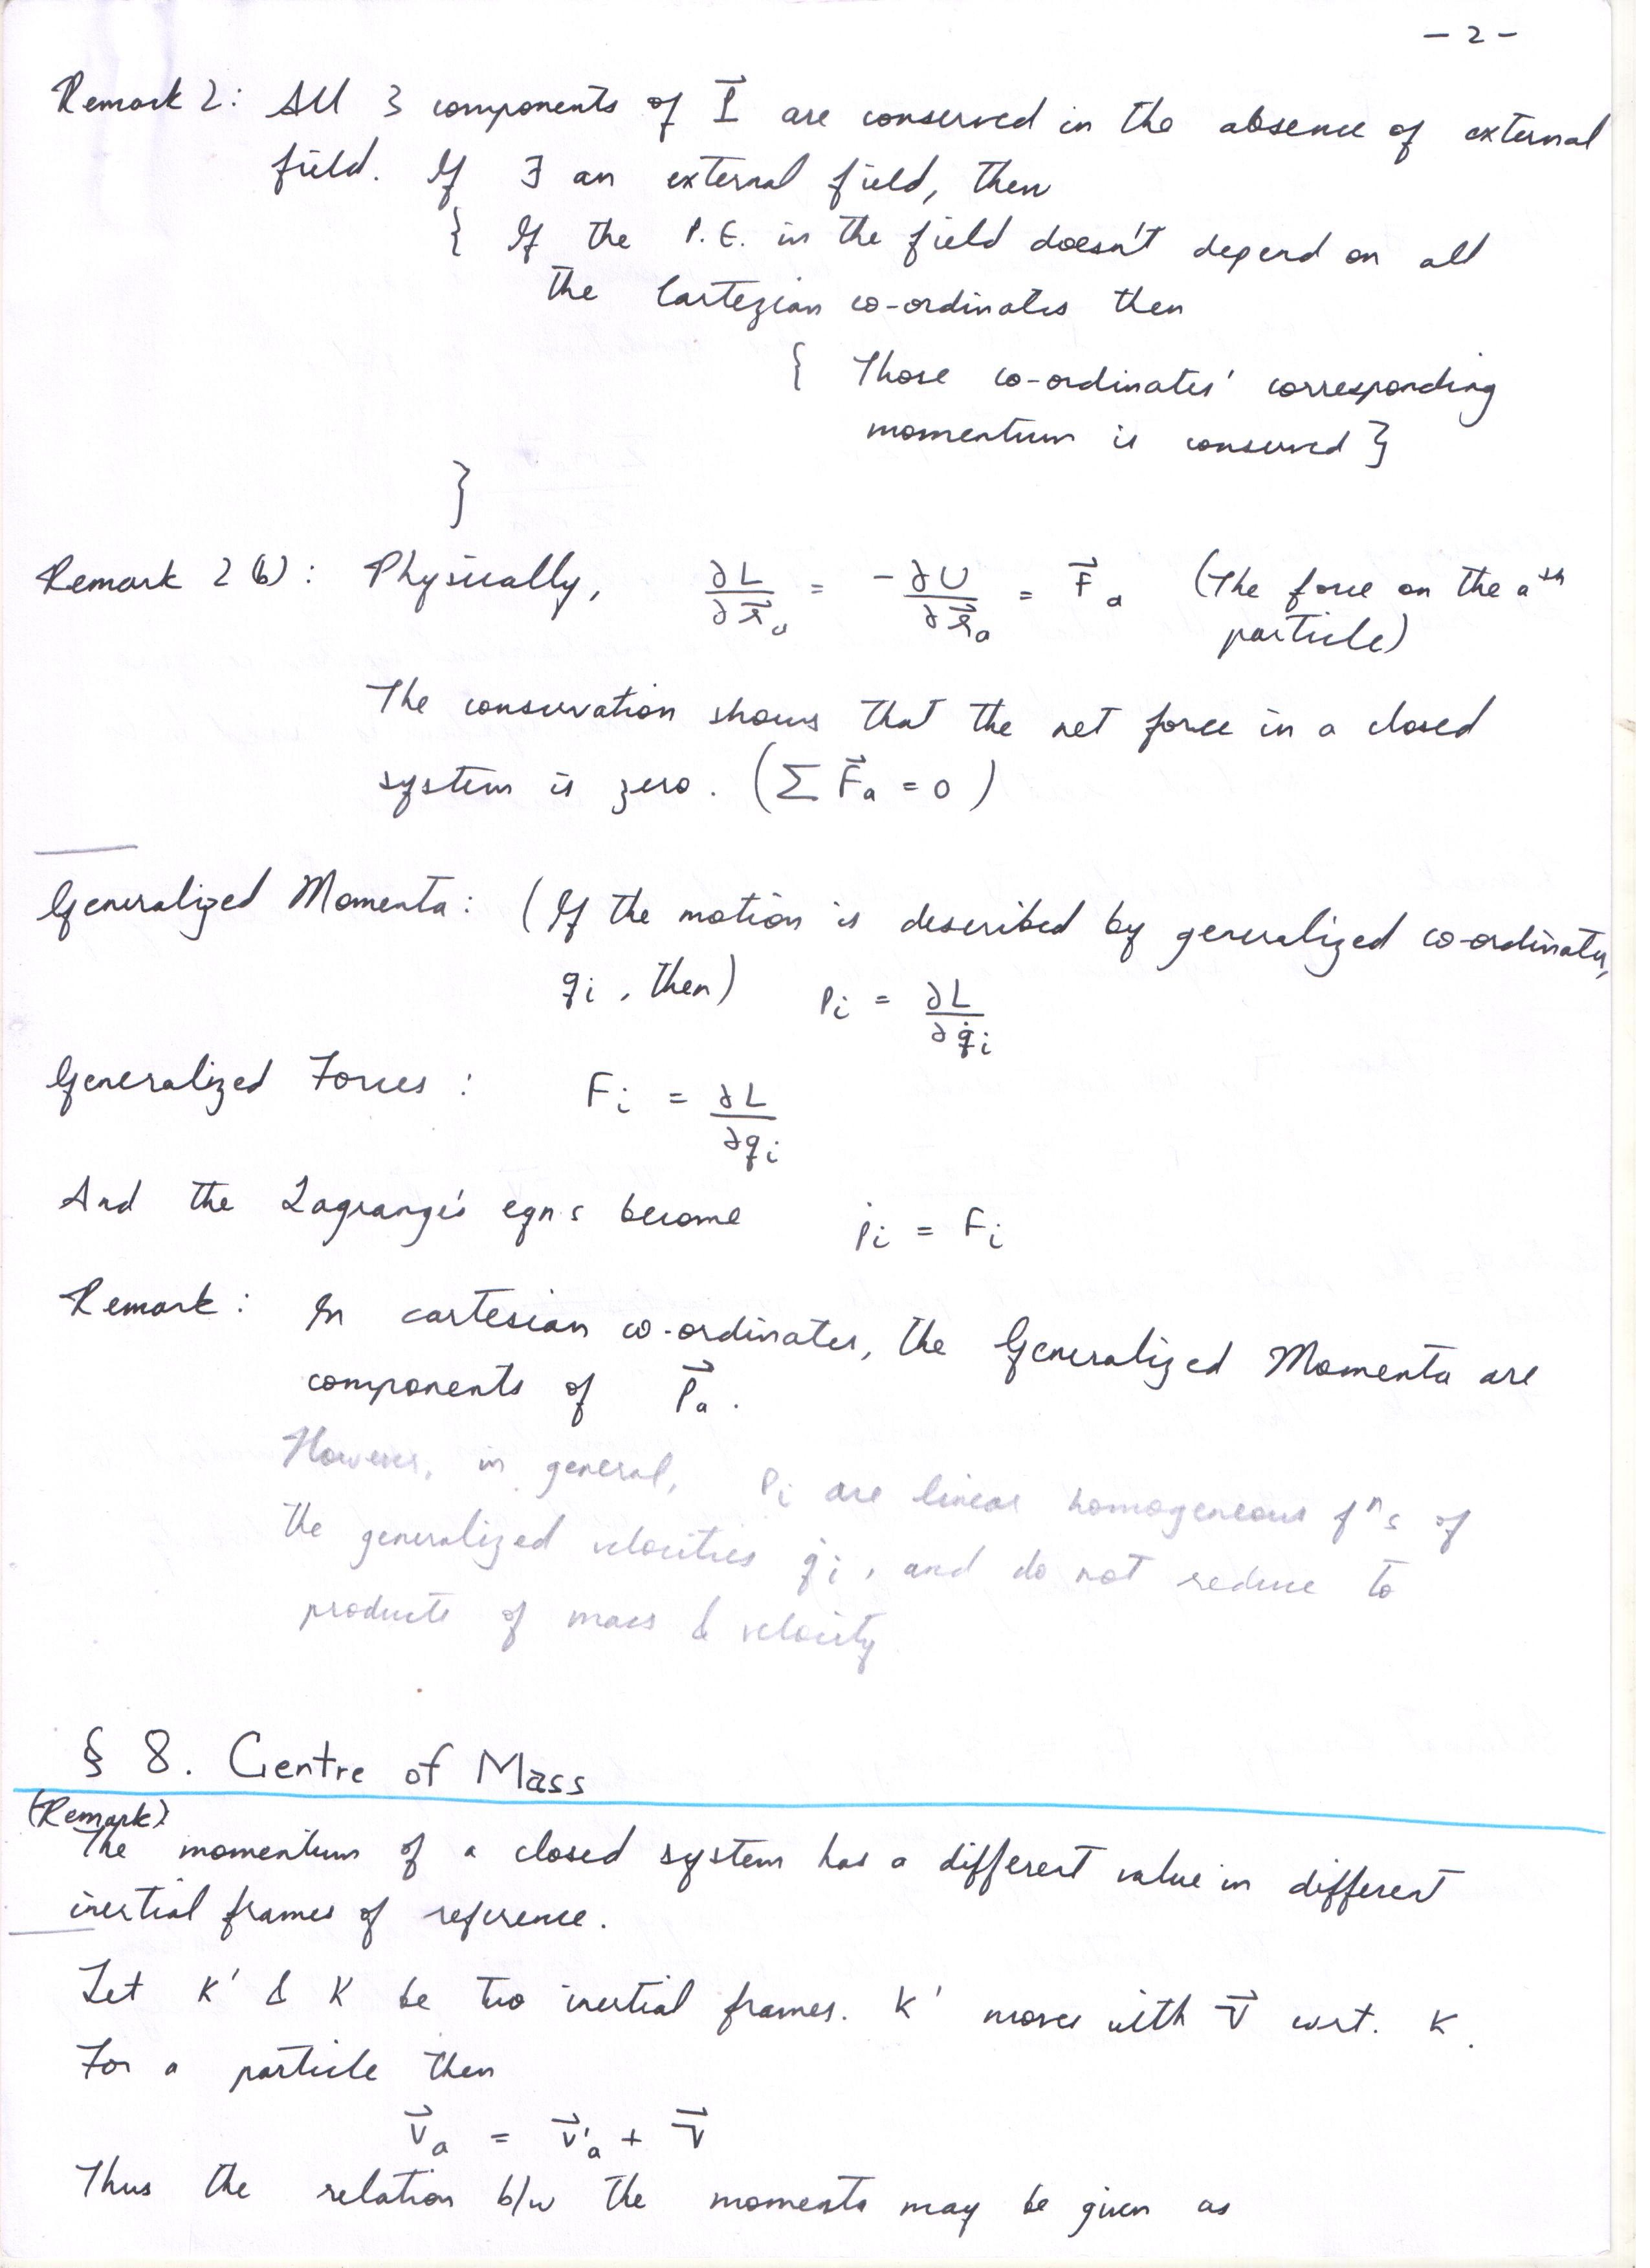 - 2 -
Remark 2: All 3 components of P⃗ are conserved in the absence of external
field. If ∃ an external field, then
{ If the P.E. in the field doesn't depend on all
the Cartezian co-ordinates then
{ Those co-ordinates' corresponding
momentum is conserved }
}
Remark 2 (b): Physically, ∂L/∂r⃗_a = -∂U/∂r⃗_a = F⃗_a (The force on the a^th
particle)
The conservation shows that the net force in a closed
system is zero. (∑ F⃗_a = 0)
Generalized Momenta: (If the motion is described by generalized co-ordinates,
q_i, then) p_i = ∂L/∂q̇_i
Generalized Forces: F_i = ∂L/∂q_i
And the Lagrange's eqns become ṗ_i = F_i
Remark: In cartesian co-ordinates, the Generalized Momenta are
components of P⃗_a.
However, in general, p_i are linear homogeneous fⁿs of
the generalized velocities q̇_i, and do not reduce to
products of mass & velocity
§ 8. Centre of Mass
(Remark)
The momentum of a closed system has a different value in different
inertial frames of reference.
Let K' & K be two inertial frames. K' moves with V⃗ wrt. K.
For a particle then
v⃗_a = v⃗'_a + V⃗
Thus the relation b/w the momenta may be given as